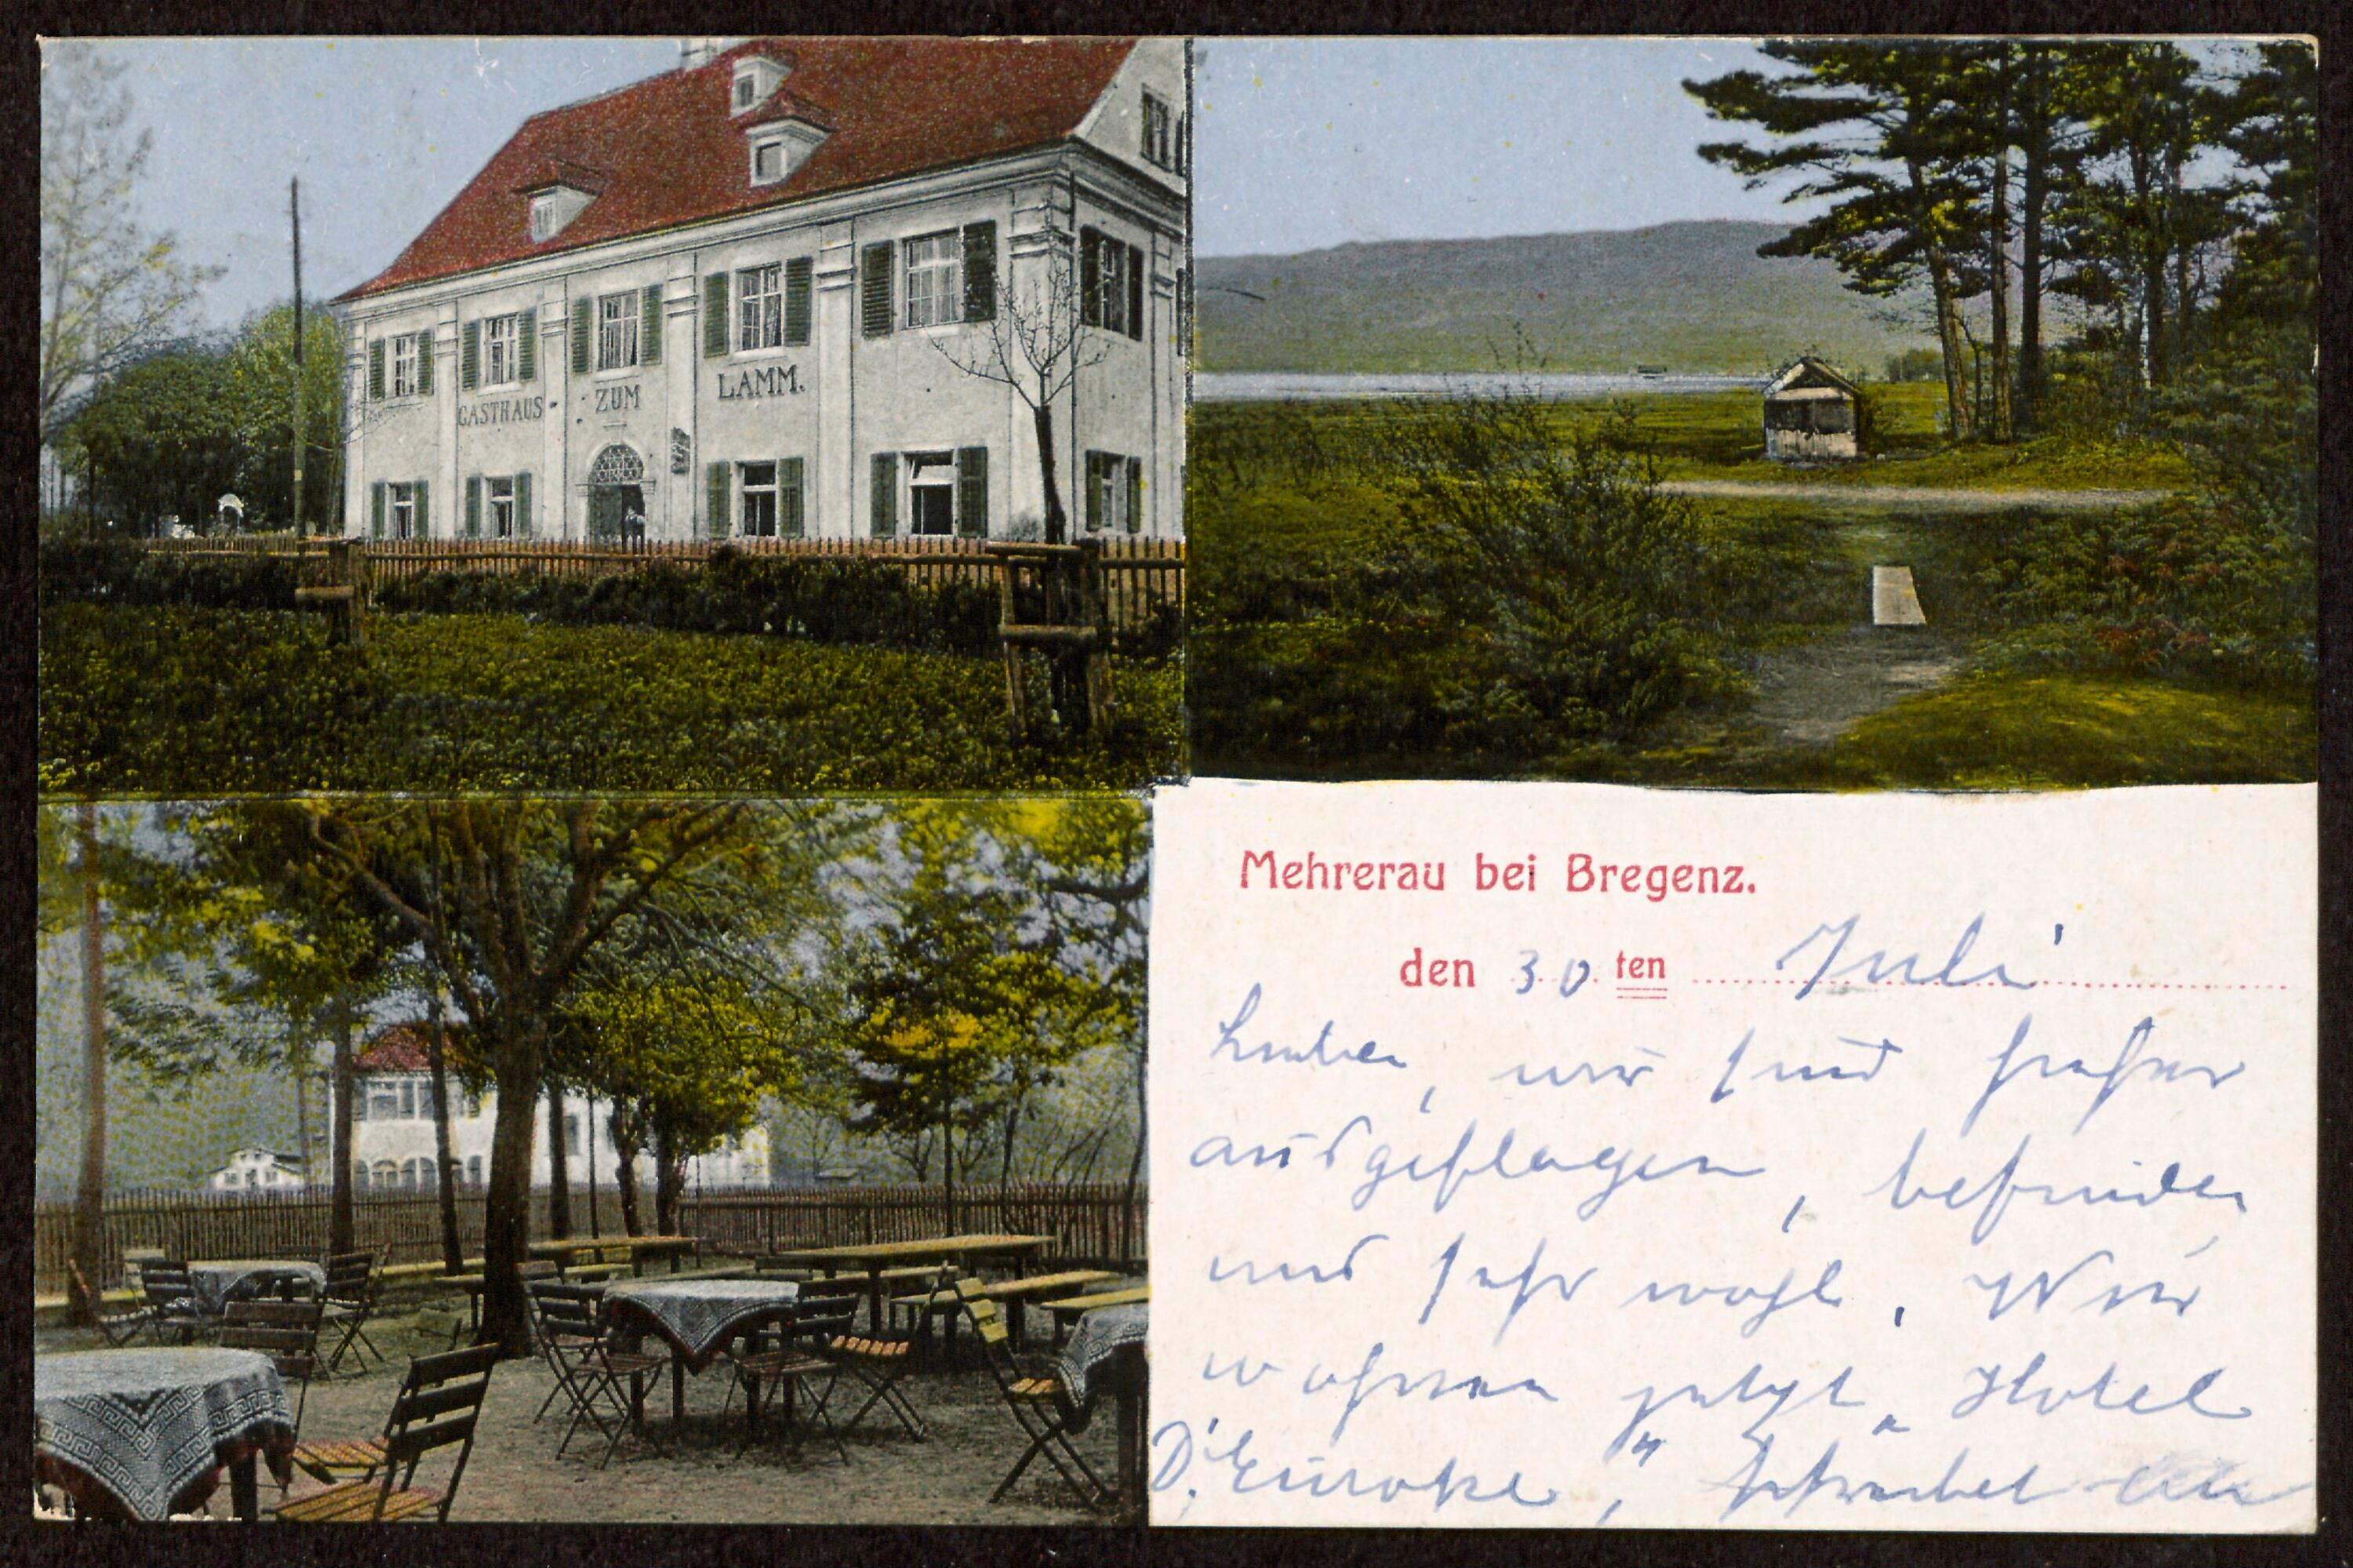 GASTHAUS ZUM LAMM.
Mehrerau bei Bregenz.
den 30 ten Juli
Lieben, wir sind hierher
ausgeflogen, befinden
uns sehr wohl. Wir
wohnen jetzt „Hotel
D'Europe", schreibet